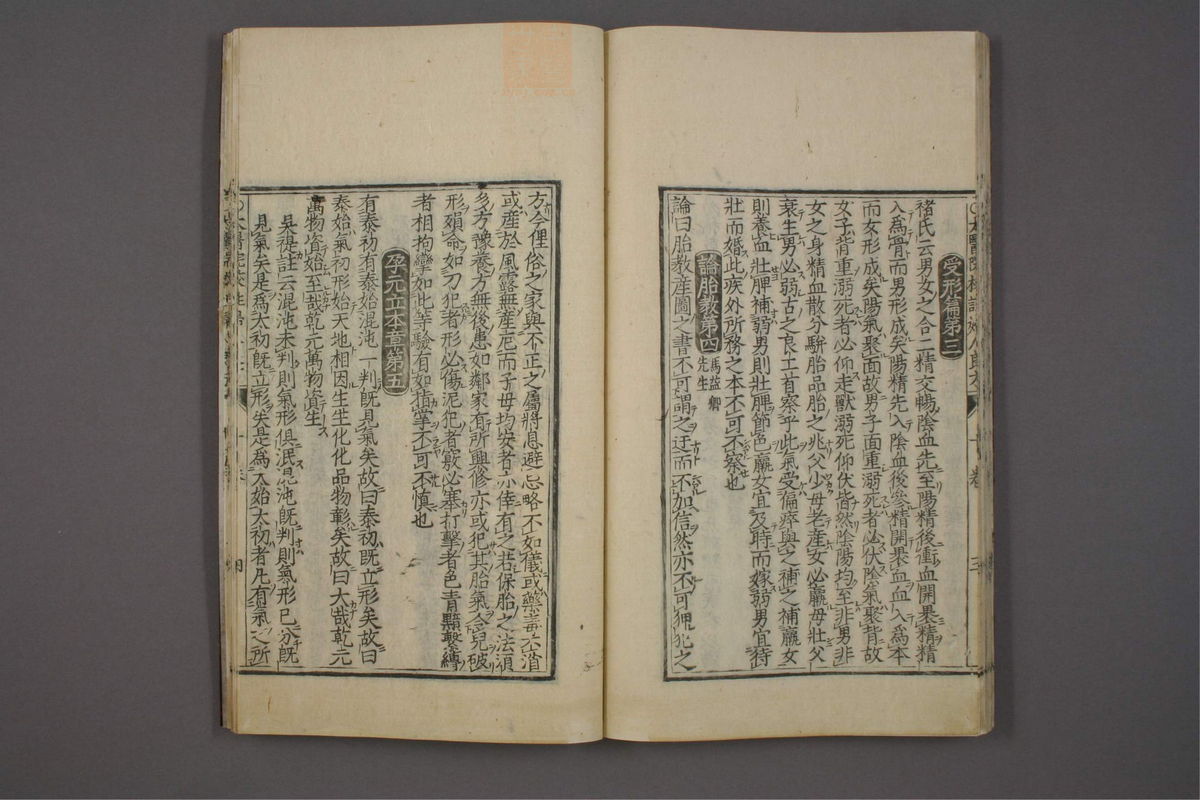 受形篇第三
褚氏云男女之合二精交暢陰血先至陽精後衝血開裹精精
入爲骨而男形成矣陽精先入陰血後參精開裹血血入爲本
而女形成矣陽氣聚面故男子面重溺死者必伏陰氣聚背故
女子背重溺死者必仰走獸溺死仰伏皆然陰陽均至非男非
女之身精血散分駢胎品胎之兆父少母老産女必羸母壯父
衰生男必弱古之良工首察乎此氣受偏瘁與之補之補羸女
則養血壯脾補弱男則壯脾節色羸女宜及時而嫁弱男宜待
壯而婚此疾外所務之本不可不察也
論胎教第四 馬益卿
先生
論曰胎教産圖之書不可謂之迂而不加信然亦不可狎犯之
方今俚俗之家與不正之屬將息避忌略不如儀或藥毒
或産於風露無産厄而子母均安者亦倖有之若保胎之法須
多方豫養方無後患如鄰家有所興修亦或犯其胎氣令兒破
形殞命如刀犯者形必傷泥犯者竅必塞打擊者色青黯繫縛
者相拘攣如此等驗有如指掌不可不慎也
孕元立本章第五
有泰初有泰始混沌一判既見氣矣故曰泰初既立形矣故曰
泰始氣初形始天地相因生生化化品物彰矣故曰大哉乾元
萬物資始至哉乾元萬物資生
吳禔註云混沌未判則氣形俱泯混沌既判則氣形已分既
見氣矣是爲太初既立形矣是爲太始太初者凡有氣之所